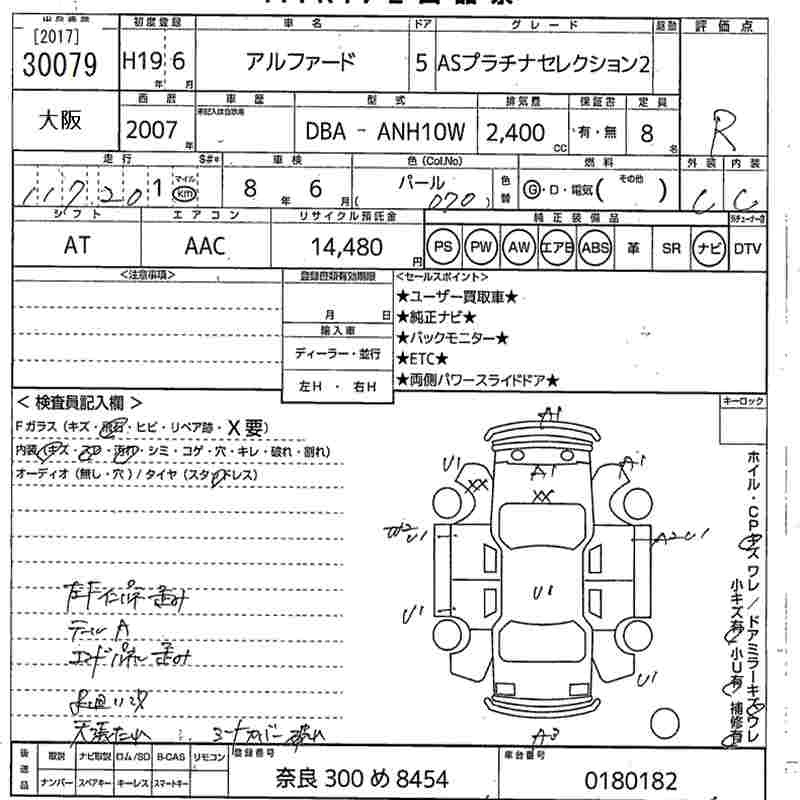 [2017]
初度登録 車名 ドア グレード 評価点
30079 H19 6 アルファード 5 ASプラチナセレクション2
年 月
西暦 車歴 型式 排気量 保証書 定員
大阪 2007 年 DBA - ANH10W 2,400 CC 有・無 8 名 R
走行 S#* 車検 色(Col.No) 燃料 外装 内装
11720 1 マイル km 8 年 6 月 パール ( 070 ) 色替 G・D・電気( その他 ) C C
シフト エアコン リサイクル預託金 純正装備品
AT AAC 14,480 円 PS PW AW エアB ABS 革 SR ナビ DTV
<注意事項> 登録書類有効期限 <セールスポイント>
★ユーザー買取車★
月 日 ★純正ナビ★
輸入車 ★バックモニター★
ディーラー・並行 ★ETC★
左H・右H ★両側パワースライドドア★
<検査員記入欄> キーロック
Fガラス(キズ・飛石・ヒビ・リペア跡・X要)
内装(キズ・・汚れ・シミ・コゲ・穴・キレ・破れ・割れ)
オーディオ(無し・穴)/タイヤ(スタッドレス)
A1
U1 A1 A1
XX XX
W2 U1 A2 U1
U1
U1
U1
A3
ホイル・CPキズ ワレ/ドアミラーキズワレ
小キズ有 小U有 補修有
テール A
エンドパネル歪み
天張たれ シートカバー破れ
後送品 取説 ナビ取説 ロム/SD B-CAS リモコン 登録番号 車台番号
ナンバー スペアキー キーレス スマートキー 奈良 300 め 8454 0180182